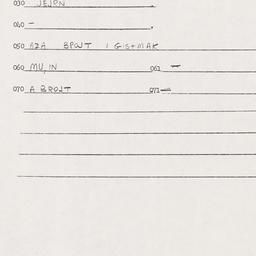 030 JEJPN
040 –
050 AZA BPOJT / GISTMAK
060 MU, IN 061 –
070 A BROJT 071 –